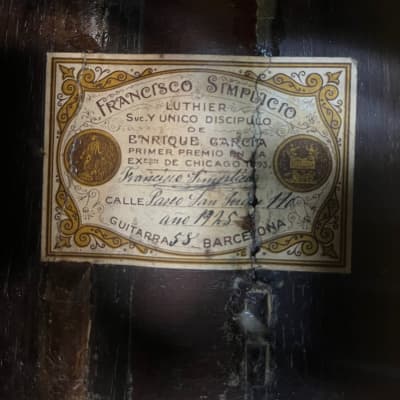 FRANCISCO SIMPLICIO
LUTHIER
SUC. Y UNICO DISCIPULO
DE
ENRIQUE GARCIA
PRIMER PREMIO EN LA
EXCION DE CHICAGO 1893
Francisco Simplicio
CALLE Paseo San Juan 110
año 1925
GUITARRA 58 BARCELONA